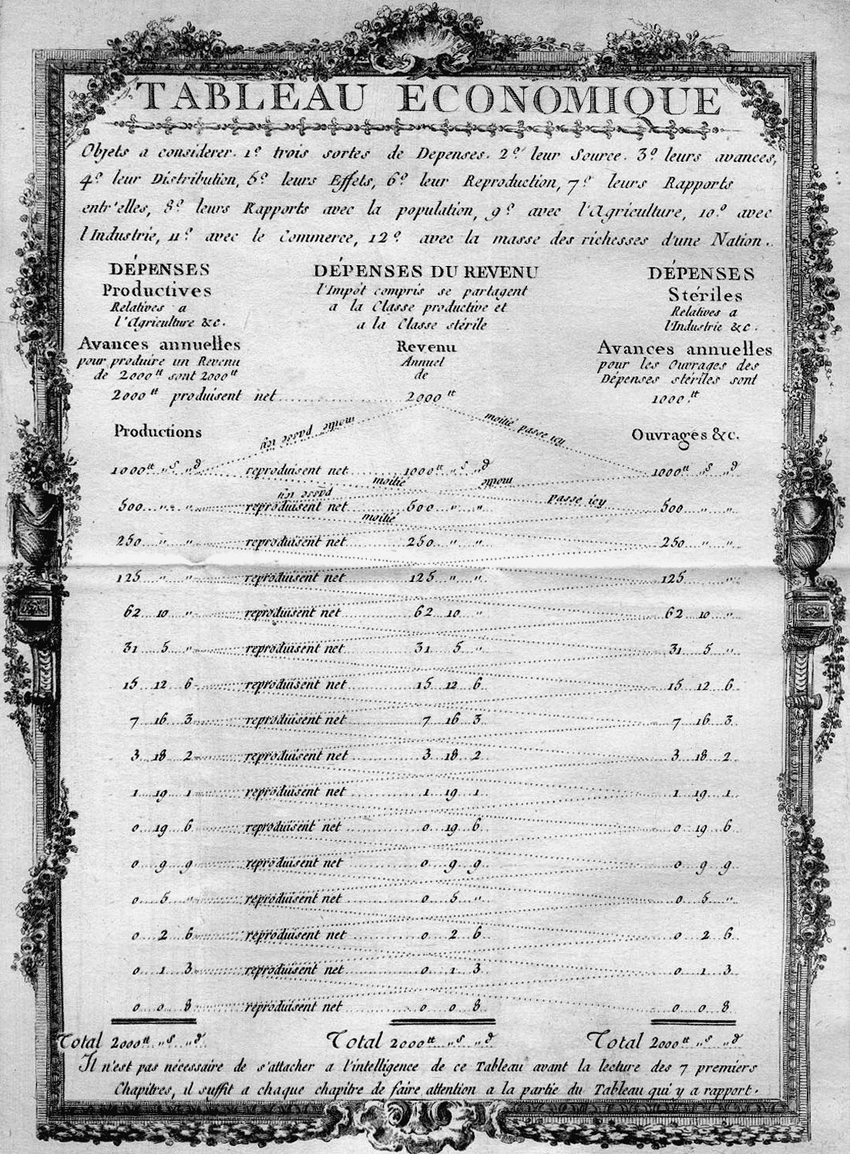 TABLEAU ECONOMIQUE
Objets a considerer. 1.º trois sortes de Depenses. 2.º leur Source. 3.º leurs avances,
4.º leur Distribution, 5.º leurs Effets, 6.º leur Reproduction, 7.º leurs Rapports
entr'elles, 8.º leurs Rapports avec la population, 9.º avec l'Agriculture, 10.º avec
l'Industrie, 11.º avec le Commerce, 12.º avec la masse des richesses d'une Nation.
DÉPENSES DÉPENSES DU REVENU DÉPENSES
Productives l'Impôt compris se partagent Stériles
Relatives a a la Classe productive et Relatives a
l'Agriculture &c. a la Classe stérile l'Industrie &c.
Avances annuelles Revenu Avances annuelles
pour produire un Revenu Annuel pour les Ouvrages des
de 2000 tt sont 2000 tt de Dépenses stériles sont
2000 tt produisent net 2000 tt 1000 tt
moitié passe icy moitié passe icy
Productions Ouvrages &c.
1000 tt „ s „ d reproduisent net 1000 tt „ s „ d 1000 tt „ s „ d
moitié moitié
passe icy passe icy
500 „ „ reproduisent net 500 „ „ 500 „ „
moitié
250 „ „ reproduisent net 250 „ „ 250 „ „
125 „ „ reproduisent net 125 „ „ 125 „
62 10 „ reproduisent net 62 10 „ 62 10 „
31 5 „ reproduisent net 31 5 „ 31 5 „
15 12 6 reproduisent net 15 12 6 15 12 6
7 16 3 reproduisent net 7 16 3 7 16 3
3 18 2 reproduisent net 3 18 2 3 18 2
1 19 1 reproduisent net 1 19 1 1 19 1
0 19 6 reproduisent net 0 19 6 0 19 6
0 9 9 reproduisent net 0 9 9 0 9 9
0 5 „ reproduisent net 0 5 „ 0 5 „
0 2 6 reproduisent net 0 2 6 0 2 6
0 1 3 reproduisent net 0 1 3 0 1 3
0 0 8 reproduisent net 0 0 8 0 0 8
Total 2000 tt „ s „ d Total 2000 tt „ s „ d Total 2000 tt „ s „ d
Il n'est pas nécessaire de s'attacher a l'intelligence de ce Tableau avant la lecture des 7 premiers
Chapitres, il suffit a chaque chapitre de faire attention a la partie du Tableau qui y a rapport.